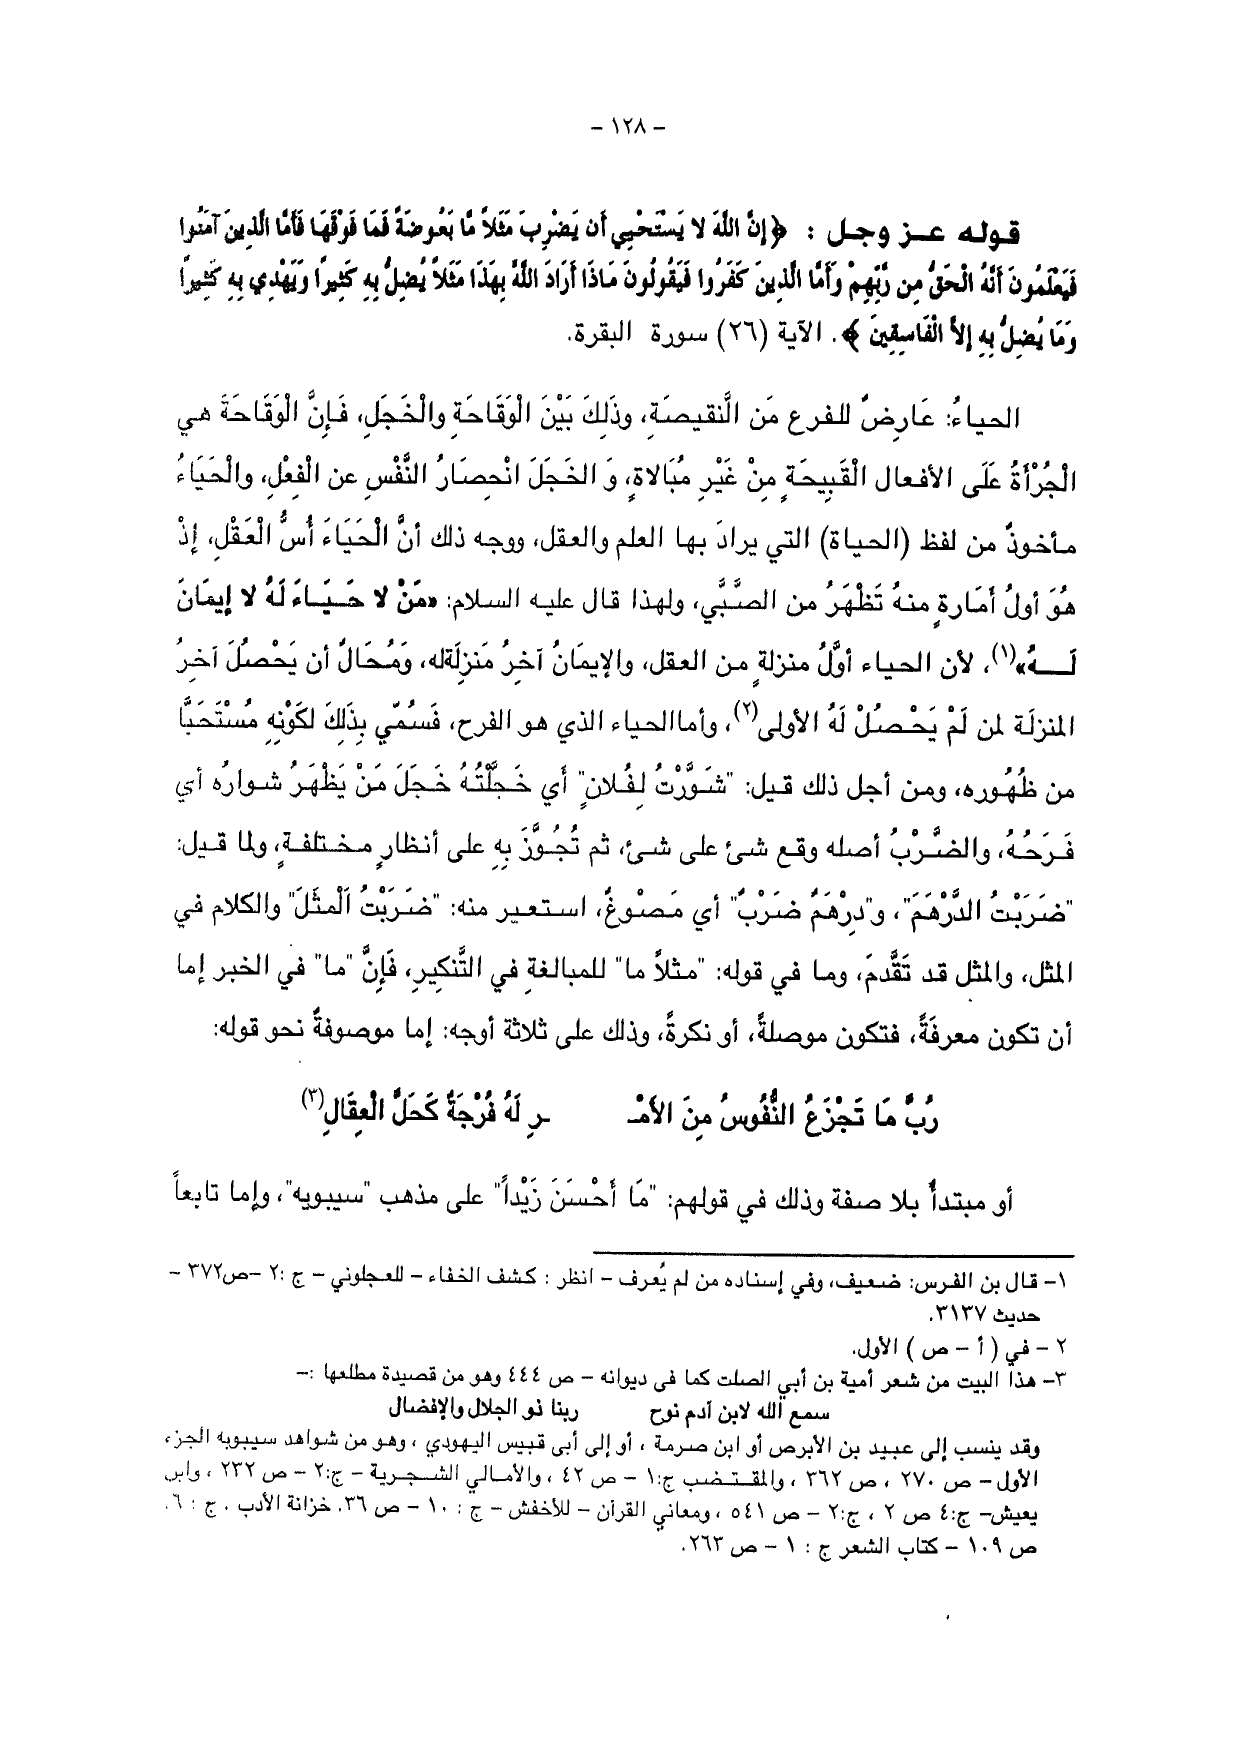 – ١٢٨ –
قوله عـز وجـل : ﴿إِنَّ اللَّهَ لا يَسْتَحْيِي أَن يَضْرِبَ مَثَلاً مَّا بَعُوضَةً فَمَا فَوْقَهَا فَأَمَّا الَّذِينَ آمَنُوا
فَيَعْلَمُونَ أَنَّهُ الْحَقُّ مِن رَّبِّهِمْ وَأَمَّا الَّذِينَ كَفَرُوا فَيَقُولُونَ مَاذَا أَرَادَ اللَّهُ بِهَذَا مَثَلاً يُضِلُّ بِهِ كَثِيراً وَيَهْدِي بِهِ كَثِيراً
وَمَا يُضِلُّ بِهِ إِلاَّ الْفَاسِقِينَ ﴾. الآية (٢٦) سورة البقرة.
الحياءُ: عَارِضٌ للفرع مَن النَّقيصَة، وذَلكَ بَيْنَ الْوَقَاحَةِ والْخَجَلِ، فَإِنَّ الْوَقَاحَةَ هي
الْجُرْأَةُ عَلَى الأفعال الْقَبِيحَةِ مِنْ غَيْرِ مُبَالاةٍ، وَ الخَجَلَ انْحِصَارُ النَّفْسِ عن الْفِعْلِ، والْحَيَاءُ
مأخوذٌ من لفظ (الحياة) التي يرادَ بها العلم والعقل، ووجه ذلك أنَّ الْحَيَاءَ أُسُّ الْعَقْلِ، إذْ
هُوَ أولُ أمَارةٍ منهُ تَظْهَرُ من الصَّبَّي، ولهذا قال عليه السلام: «مَنْ لا حَـيَـاءَ لَهُ لا إيمَانَ
لَـــهُ»(١)، لأن الحياء أوَّلُ منزلةٍ من العقل، والإيمَانُ آخرُ مَنزلَةله، وَمُحَالٌ أن يَحْصُلَ آخرُ
المنزلَة لمن لَمْ يَحْصُلْ لَهُ الأولى(٢)، وأماالحياء الذي هو الفرح، فَسُمّي بِذَلِكَ لكَوْنِهِ مُسْتَحَيَّاً
من ظُهُوره، ومن أجل ذلك قيل: "شَوَّرْتُ لِفُلانٍ" أي خَجَّلْتُهُ خَجَلَ مَنْ يَظْهَرُ شوارُه أي
فَرَحُهُ، والضَّرْبُ أصله وقع شئ على شئ، ثم تُجُوَّزَ بِهِ على أنظارٍ مختلفةٍ، ولما قيل:
"ضَرَبْتُ الدَّرْهَمَ"، و"دِرْهَمٌ ضَرْبٌ" أي مَصْنُوغٌ، استعير منه: "ضَرَبْتُ الْمثَلَ" والكلام في
المثل، والمثل قد تَقَّدمَ، وما في قوله: "مثلاً ما" للمبالغة في التَّنكيرِ، فَإنَّ "ما" في الخبر إما
أن تكون معرفَةً، فتكون موصلةً، أو نكرةً، وذلك على ثلاثة أوجه: إما موصوفةٌ نحو قوله:
رُبَّ مَا تَجْزَعُ النُّفُوسُ مِنَ الأَمْـ ـرِ لَهُ فُرْجَةٌ كَحَلِّ الْعِقَالِ(٣)
أو مبتدأً بلا صفة وذلك في قولهم: "مَا أَحْسَنَ زَيْداً" على مذهب "سيبويه"، وإما تابعاً
١– قال بن الفرس: ضعيف، وفي إسناده من لم يُعرف – انظر : كشف الخفاء – للعجلوني – ج :٢ –ص٣٧٢ –
حديث ٣١٣٧.
٢ – في ( أ – ص ) الأول.
٣– هذا البيت من شعر أمية بن أبي الصلت كما فى ديوانه – ص ٤٤٤ وهو من قصيدة مطلعها :–
سمع الله لابن آدم نوح ربنا نو الجلال والإفضال
وقد ينسب إلى عبيد بن الأبرص أو ابن صرمة ، أو إلى أبى قبيس اليهودي ، وهو من شواهد سيبويه الجزء
الأول – ص ٢٧٠ ، ص ٣٦٢ ، والمقـتـضب ج:١ – ص ٤٢ ، والأمـالي الشـجـرية – ج:٢ – ص ٢٣٢ ، وابن
يعيش– ج:٤ ص ٢ ، ج:٢ – ص ٥٤١ ، ومعاني القرآن – للأخفش – ج : ١٠ – ص ٣٦. خزانة الأدب . ج : ٦.
ص ١٠٩ – كتاب الشعر ج : ١ – ص ٢٦٣.